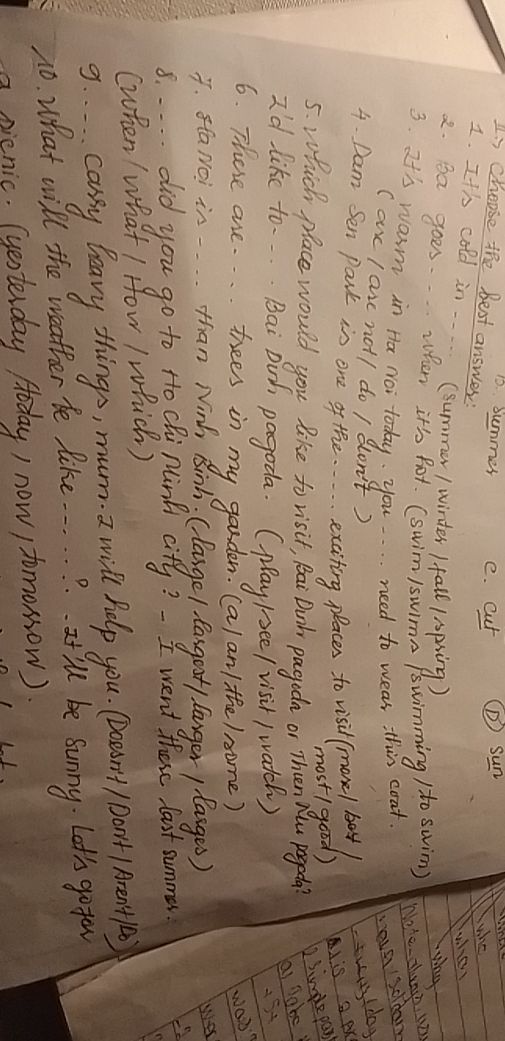 b. summer c. cut D sun
II, Choose the best answer:
1. It's cold in ..... (summer / winter / fall / spring)
2. Ba goes ..... when it's hot. (swim / swims / swimming / to swim)
3. It's warm in Ha Noi today. You .... need to wear this coat.
(are / are not / do / don't)
4. Dam Sen park is one of the ..... exciting places to visit (more / best /
most / good)
5. Which place would you like to visit, Bai Dinh pagoda or Thien Mu pagoda?
I'd like to .... Bai Dinh pagoda. (play / see / visit / watch)
6. There are .... trees in my garden. (a / an / the / some)
7. Ha Noi is .... than Ninh Binh. (large / largest / larger / larges)
8. .... did you go to Ho Chi Minh city? - I went there last summer.
(When / What / How / which)
9. .... carry heavy things, mum. I will help you. (Doesn't / Don't / Aren't / Do)
10. What will the weather be like .......? - It'll be sunny. Let's go for
a picnic. (yesterday / today / now / tomorrow).
who
when
why
day
a